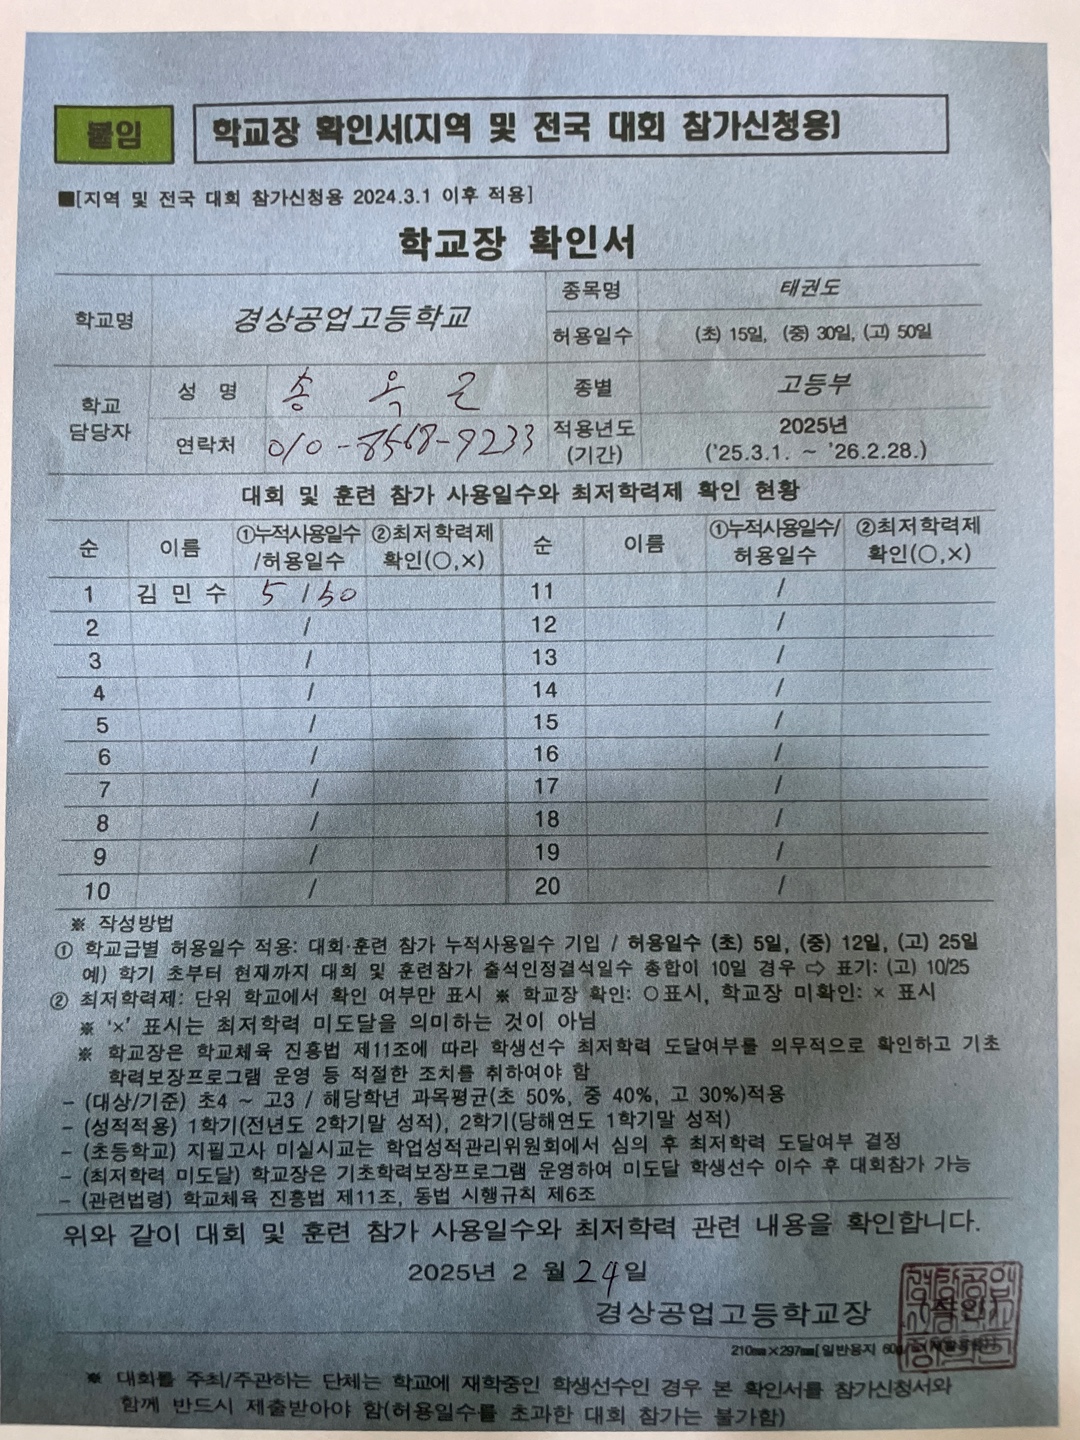 붙임
학교장 확인서(지역 및 전국 대회 참가신청용)
■[지역 및 전국 대회 참가신청용 2024.3.1 이후 적용]
학교장 확인서
학교명 경상공업고등학교 종목명 태권도
허용일수 (초) 15일, (중) 30일, (고) 50일
학교 담당자 성 명 송 옥 근 종별 고등부
연락처 010-8568-9233 적용년도 (기간) 2025년 ('25.3.1. ~ '26.2.28.)
대회 및 훈련 참가 사용일수와 최저학력제 확인 현황
순 이름 ①누적사용일수/허용일수 ②최저학력제 확인(○,×) 순 이름 ①누적사용일수/허용일수 ②최저학력제 확인(○,×)
1 김 민 수 5 / 50 11 /
2 / 12 /
3 / 13 /
4 / 14 /
5 / 15 /
6 / 16 /
7 / 17 /
8 / 18 /
9 / 19 /
10 / 20 /
※ 작성방법
① 학교급별 허용일수 적용: 대회·훈련 참가 누적사용일수 기입 / 허용일수 (초) 5일, (중) 12일, (고) 25일
예) 학기 초부터 현재까지 대회 및 훈련참가 출석인정결석일수 총합이 10일 경우 ⇨ 표기: (고) 10/25
② 최저학력제: 단위 학교에서 확인 여부만 표시 ※ 학교장 확인: ○표시, 학교장 미확인: × 표시
※ '×' 표시는 최저학력 미도달을 의미하는 것이 아님
※ 학교장은 학교체육 진흥법 제11조에 따라 학생선수 최저학력 도달여부를 의무적으로 확인하고 기초
학력보장프로그램 운영 등 적절한 조치를 취하여야 함
- (대상/기준) 초4 ~ 고3 / 해당학년 과목평균(초 50%, 중 40%, 고 30%)적용
- (성적적용) 1학기(전년도 2학기말 성적), 2학기(당해연도 1학기말 성적)
- (초등학교) 지필고사 미실시교는 학업성적관리위원회에서 심의 후 최저학력 도달여부 결정
- (최저학력 미도달) 학교장은 기초학력보장프로그램 운영하여 미도달 학생선수 이수 후 대회참가 가능
- (관련법령) 학교체육 진흥법 제11조, 동법 시행규칙 제6조
위와 같이 대회 및 훈련 참가 사용일수와 최저학력 관련 내용을 확인합니다.
2025년 2 월 24일
경상공업고등학교장 직인
210㎜×297㎜[일반용지 60g/
※ 대회를 주최/주관하는 단체는 학교에 재학중인 학생선수인 경우 본 확인서를 참가신청서와
함께 반드시 제출받아야 함(허용일수를 초과한 대회 참가는 불가함)